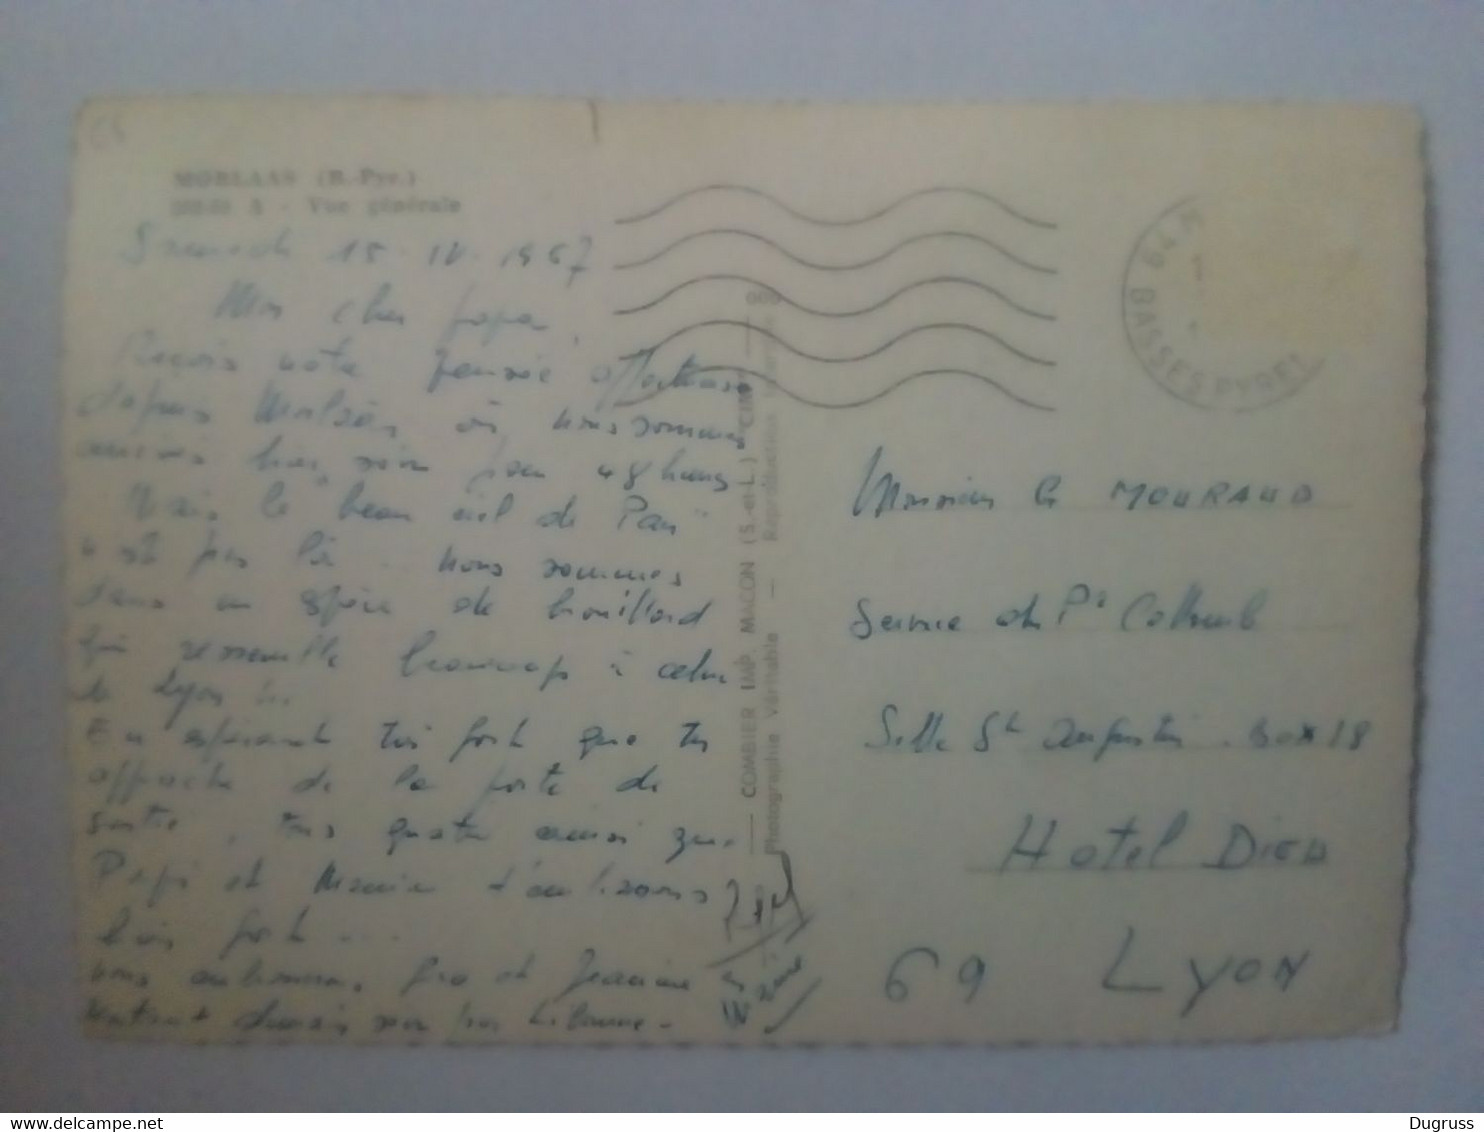 MORLAAS (B.-Pyr.)
A - Vue générale
15. IV. 1967
Mon cher papa,
Reçois notre pensée affectueuse
depuis Morlaas, où nous sommes
arrivés hier soir pour 48 heures
Mais le "beau ciel de Pau"
n'est pas là... nous sommes
dans un espèce de brouillard
qui ressemble beaucoup à celui
de Lyon
En espérant très fort que tu
approches de la porte de
sortie, tous quatre ainsi que
Papi et Mamie t'embrassons
bien fort...
nous et Jeanine
COMBIER IMP. MACON (S.-et-L.) "CIM"
Photographie Véritable - Reproduction Interdite
64
BASSES PYRÉN
Monsieur G MOURAUD
Service du Pr Collomb
Salle St Augustin. Box 18
Hotel DIEU
69 Lyon
Dugruss